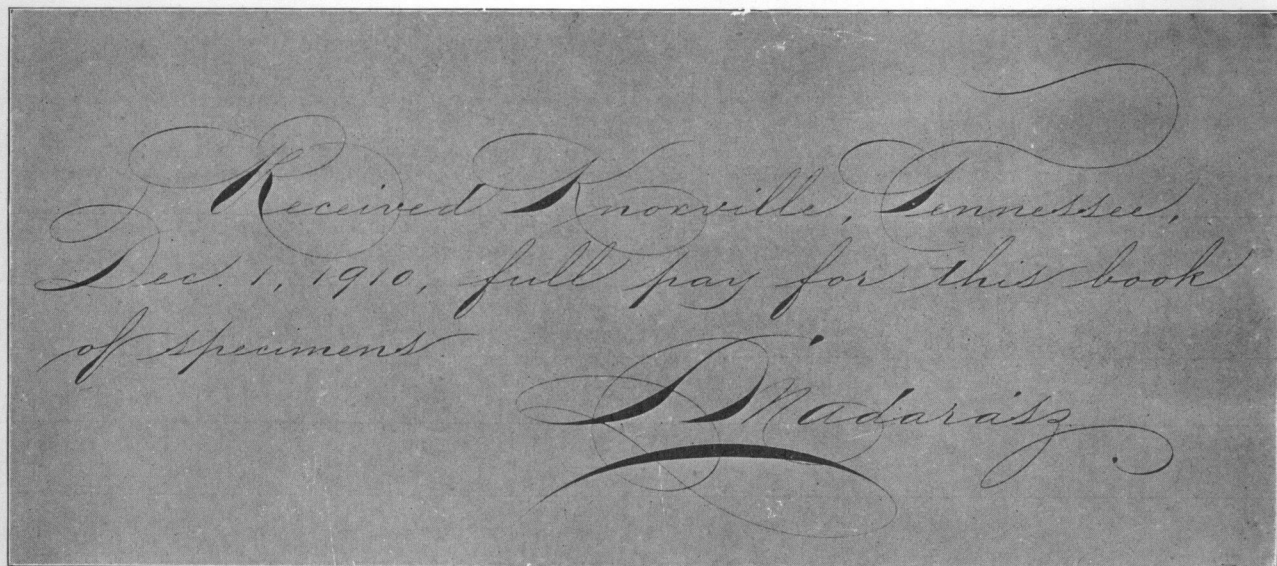 Received Knoxville, Tennessee,
Dec. 1, 1910, full pay for this book
of specimens
L. Madarász